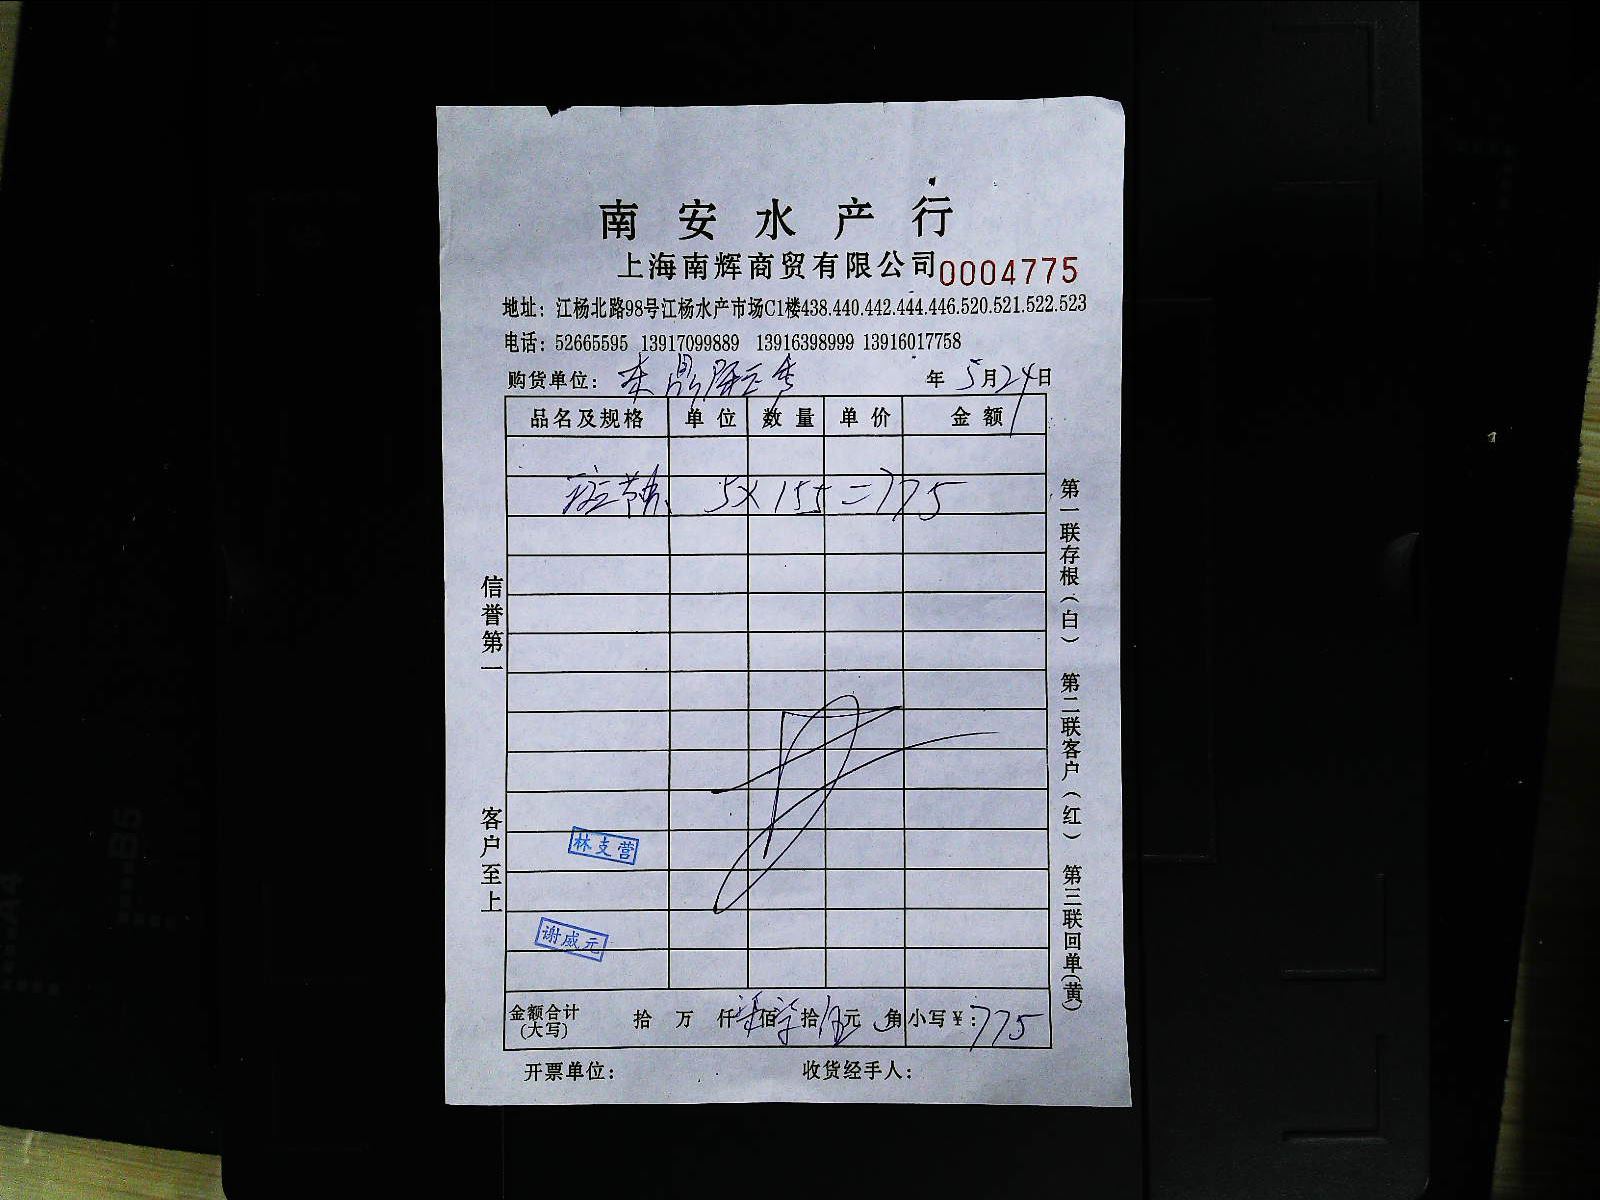 南安水产行
上海南辉商贸有限公司 0004775
地址：江杨北路98号江杨水产市场C1楼438.440.442.444.446.520.521.522.523
电话：52665595 13917099889 13916398999 13916017758
购货单位： 年 5月24日
品名及规格 单位 数量 单价 金额
5×155=775
信誉第一
客户至上
第一联存根（白） 第二联客户（红） 第三联回单（黄）
林支营
谢威元
金额合计(大写) 拾 万 仟 柒佰 柒拾 伍元 角 小写￥：775
开票单位： 收货经手人：